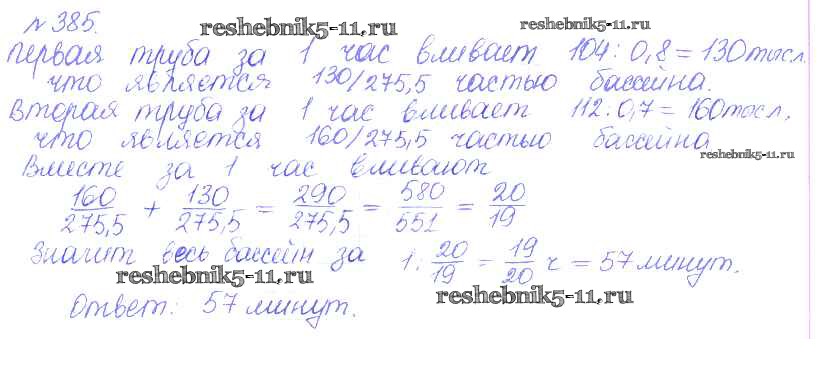 №385. reshebnik5-11.ru reshebnik5-11.ru
Первая труба за 1 час вливает 104:0,8=130тыс.л.
что является 130/275,5 частью бассейна.
Вторая труба за 1 час вливает 112:0,7=160тыс.л,
что является 160/275,5 частью бассейна
reshebnik5-11.ru
Вместе за 1 час вливают
160/275,5 + 130/275,5 = 290/275,5 = 580/551 = 20/19
Значит весь бассейн за 1: 20/19 = 19/20 ч = 57 минут.
reshebnik5-11.ru reshebnik5-11.ru
Ответ: 57 минут.